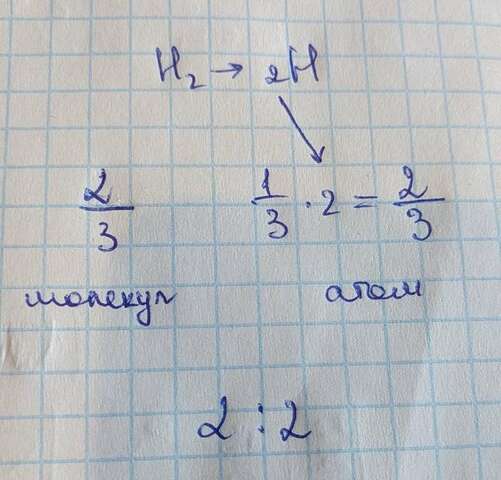 H₂ → 2H
2/3 1/3 · 2 = 2/3
молекул атом
2 : 2